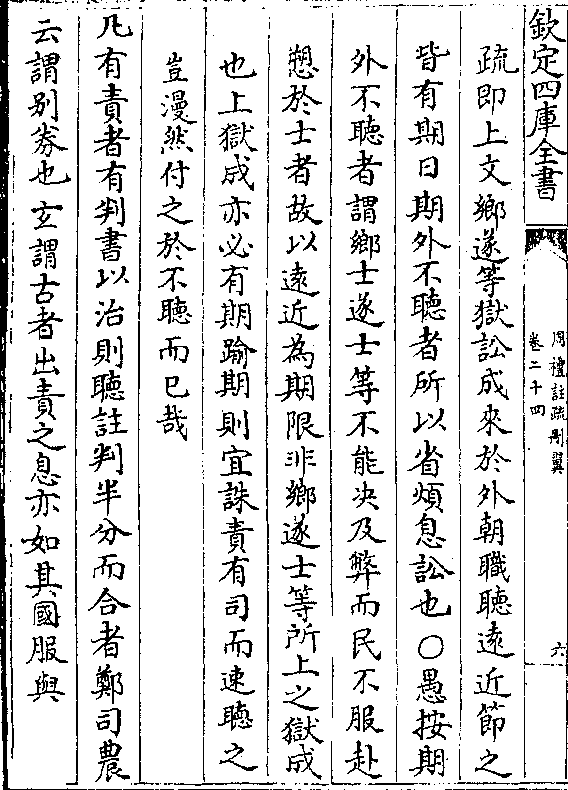 欽定四庫全書
周禮註疏刪翼
卷二十四
六
疏即上文鄉遂等獄訟成來於外朝職聽遠近節之
皆有期日期外不聽者所以省煩息訟也○愚按期
外不聽者謂鄉士遂士等不能決及弊而民不服赴
愬於士者故以遠近為期限非鄉遂士等所上之獄成
也上獄成亦必有期踰期則宜誅責有司而速聽之
豈漫然付之於不聽而已哉
凡有責者有判書以治則聽註判半分而合者鄭司農
云謂别劵也玄謂古者出責之息亦如其國服與